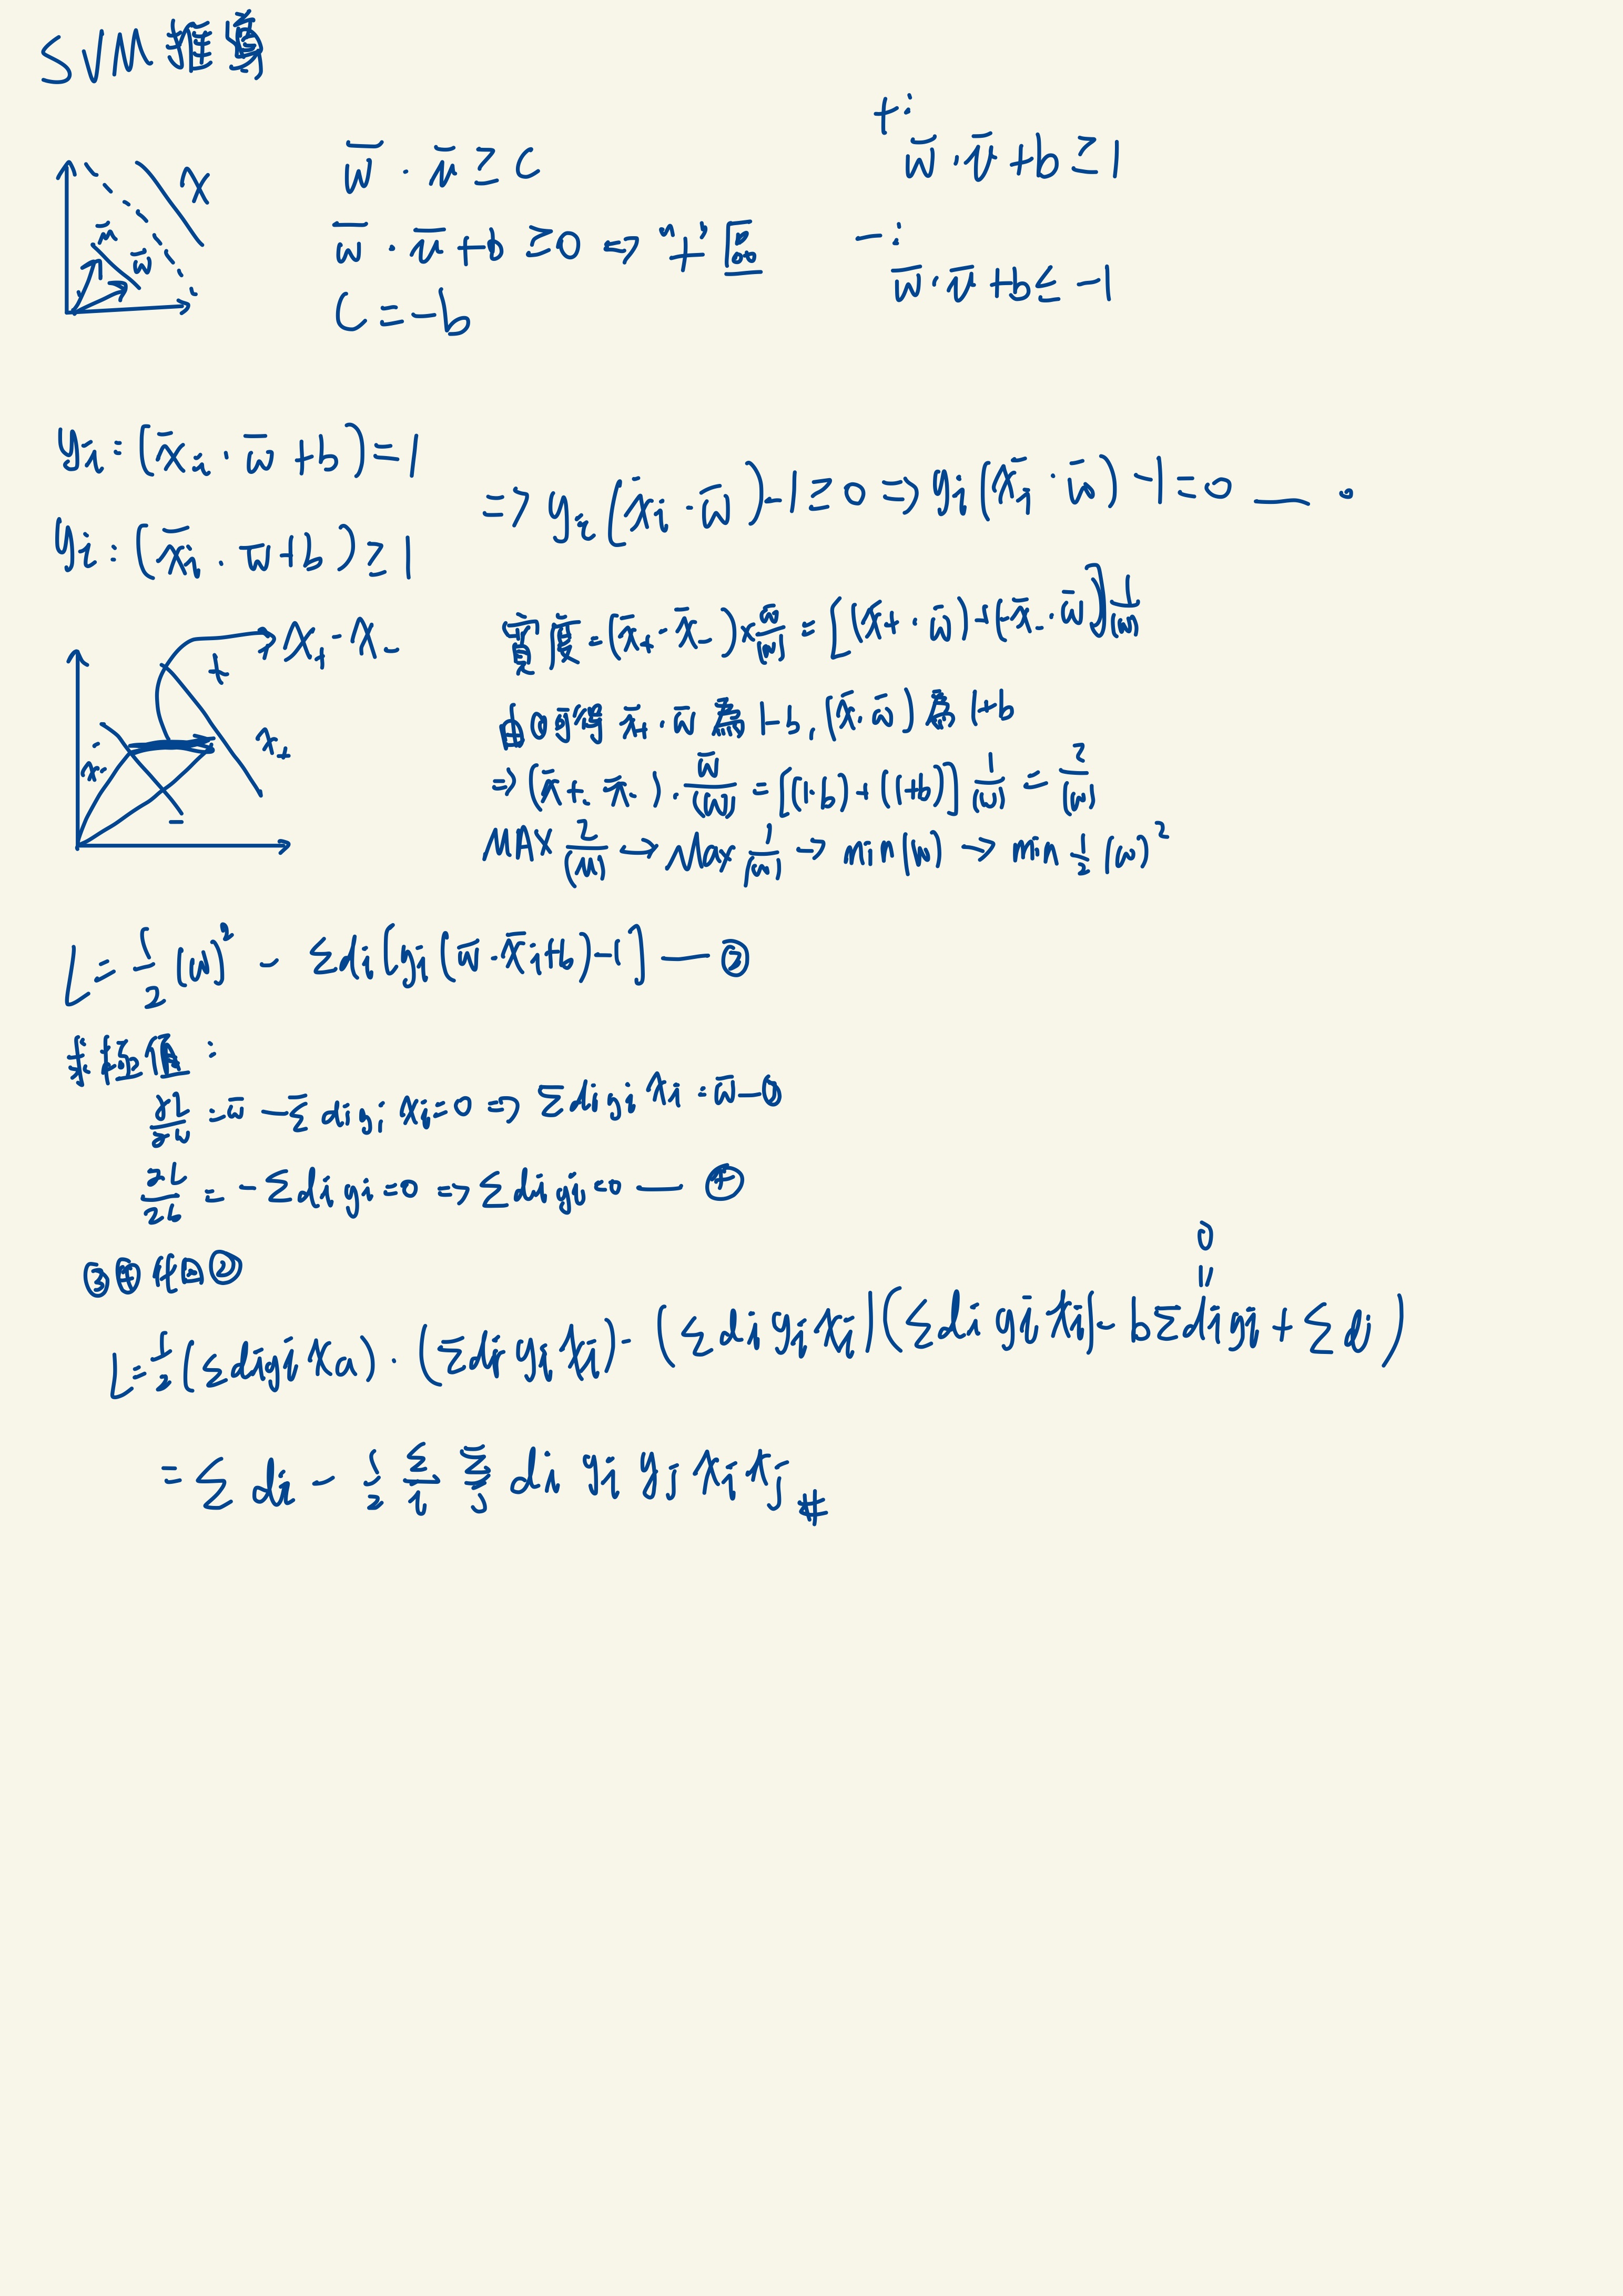 SVM推導
x
ū
w̄
w̄ · ū ≥ c
w̄ · ū + b ≥ 0 <=> "+" 區
c = -b
+:
w̄ · ū + b ≥ 1
-:
w̄ · ū + b ≤ -1
yi: (x̄i · w̄ + b) = 1
yi: (x̄i · w̄ + b) ≥ 1
=> yi (x̄i · w̄) - 1 ≥ 0 => yi (x̄i · w̄) - 1 = 0 —
x+ - x-
+
x+
x-
-
寬度 = (x̄+ - x̄-) × w̄/|w| = [(x̄+ · w̄) + (-x̄- · w̄)] 1/|w|
由①可得 x̄+ · w̄ 為 1-b, (x̄ · w̄) 為 1+b
=> (x̄+ - x̄-) · w̄/|w| = [(1-b) + (1+b)] 1/|w| = 2/|w|
MAX 2/|w| → Max 1/|w| → min |w| → min 1/2 |w|²
L = 1/2 |w|² - Σαi [yi (w̄ · x̄i + b) - 1] — ②
求極值:
∂L/∂w = w̄ - Σ αi yi xi = 0 => Σ αi yi xi = w̄ — ③
∂L/∂b = - Σ αi yi = 0 => Σ αi yi = 0 — ④
③④代回②
0
=
L = 1/2 (Σ αi yi xa) · (Σ αi yi xi) - (Σ αi yi xi) (Σ αi yi xi) - b Σ αi yi + Σ αi)
= Σ αi - 1/2 Σi Σj αi yi yj xi xj #